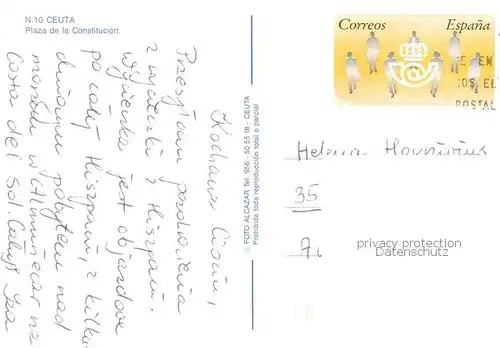 N.10 CEUTA
Plaza de la Constitución
Kochana Ciociu,
Przesyłam pozdrowienia
z wycieczki z Hiszpanii.
Wycieczka jest objazdowa
po całej Hiszpanii, z kilku
dniowym pobytem nad
morzem w Almuñecar na
Costa del Sol. Całuję Iza
© FOTO ALCAZAR Tel. 956 - 50 55 18 - CEUTA
Prohibida toda reproducción total o parcial
Correos España
OS EL
POSTAL
Helena
35
privacy protection
Datenschutz